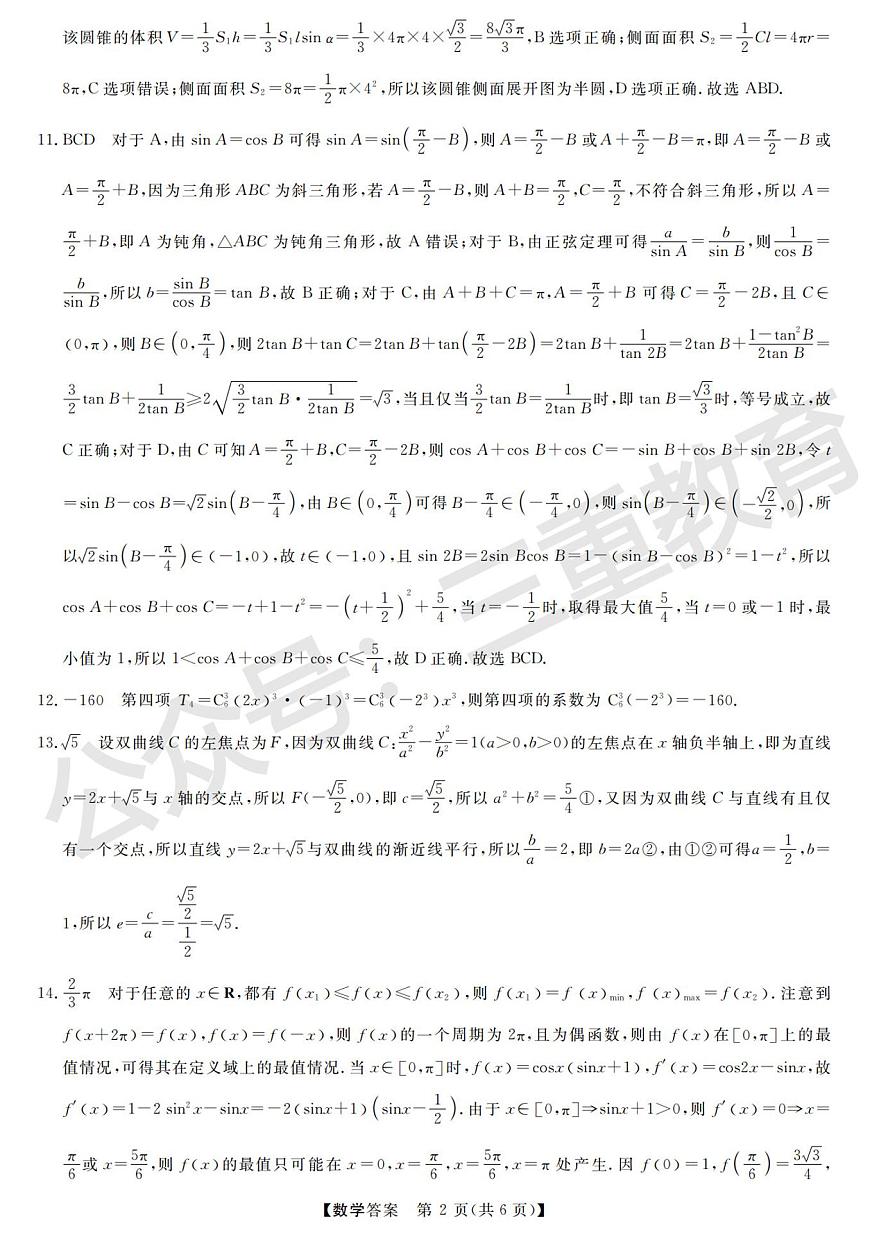 该圆锥的体积V=1/3 S₁h=1/3 S₁lsin α=1/3×4π×4×√3/2=8√3π/3,B选项正确;侧面面积 S₂=1/2 Cl=4πr=
8π,C选项错误;侧面面积 S₂=8π=1/2 π×4²,所以该圆锥侧面展开图为半圆,D选项正确.故选 ABD.
11. BCD 对于 A,由 sin A=cos B 可得 sin A=sin(π/2-B),则 A=π/2-B 或A+π/2-B=π,即 A=π/2-B 或
A=π/2+B,因为三角形 ABC 为斜三角形,若 A=π/2-B,则 A+B=π/2,C=π/2,不符合斜三角形,所以 A=
π/2+B,即 A 为钝角,△ABC 为钝角三角形,故 A 错误;对于 B,由正弦定理可得 a/sin A=b/sin B,则 1/cos B=
b/sin B,所以 b=sin B/cos B=tan B,故 B 正确;对于 C,由 A+B+C=π,A=π/2+B 可得 C=π/2-2B,且 C∈
(0,π),则 B∈(0,π/4),则 2tan B+tan C=2tan B+tan(π/2-2B)=2tan B+1/tan 2B=2tan B+(1-tan²B)/2tan B=
3/2 tan B+1/2tan B≥2√(3/2 tan B·1/2tan B)=√3,当且仅当 3/2 tan B=1/2tan B时,即 tan B=√3/3时,等号成立,故
C 正确;对于 D,由 C 可知A=π/2+B,C=π/2-2B,则 cos A+cos B+cos C=-sin B+cos B+sin 2B,令 t
=sin B-cos B=√2sin(B-π/4),由 B∈(0,π/4)可得 B-π/4∈(-π/4,0),则 sin(B-π/4)∈(-√2/2,0),所
以√2sin(B-π/4)∈(-1,0),故 t∈(-1,0),且 sin 2B=2sin Bcos B=1-(sin B-cos B)²=1-t²,所以
cos A+cos B+cos C=-t+1-t²=-(t+1/2)²+5/4,当 t=-1/2时,取得最大值5/4,当 t=0 或-1 时,最
小值为 1,所以 1<cos A+cos B+cos C≤5/4,故 D 正确.故选 BCD.
12. -160 第四项 T₄=C₆³(2x)³·(-1)³=C₆³(-2³)x³,则第四项的系数为 C₆³(-2³)=-160.
13. √5 设双曲线 C 的左焦点为 F,因为双曲线 C:x²/a²-y²/b²=1(a>0,b>0)的左焦点在 x 轴负半轴上,即为直线
y=2x+√5与 x 轴的交点,所以 F(-√5/2,0),即 c=√5/2,所以 a²+b²=5/4①,又因为双曲线 C 与直线有且仅
有一个交点,所以直线 y=2x+√5与双曲线的渐近线平行,所以b/a=2,即 b=2a②,由①②可得a=1/2,b=
1,所以 e=c/a=(√5/2)/(1/2)=√5.
14. 2/3 π 对于任意的 x∈R,都有 f(x₁)≤f(x)≤f(x₂),则 f(x₁)=f(x)min,f(x)max=f(x₂).注意到
f(x+2π)=f(x),f(x)=f(-x),则 f(x)的一个周期为 2π,且为偶函数,则由 f(x)在[0,π]上的最
值情况,可得其在定义域上的最值情况.当 x∈[0,π]时,f(x)=cosx(sinx+1),f′(x)=cos2x-sinx,故
f′(x)=1-2 sin²x-sinx=-2(sinx+1)(sinx-1/2).由于 x∈[0,π]⇒sinx+1>0,则 f′(x)=0⇒x=
π/6或 x=5π/6,则 f(x)的最值只可能在 x=0,x=π/6,x=5π/6,x=π 处产生.因 f(0)=1,f(π/6)=3√3/4,
【数学答案 第 2 页(共 6 页)】
公众号:三重教育